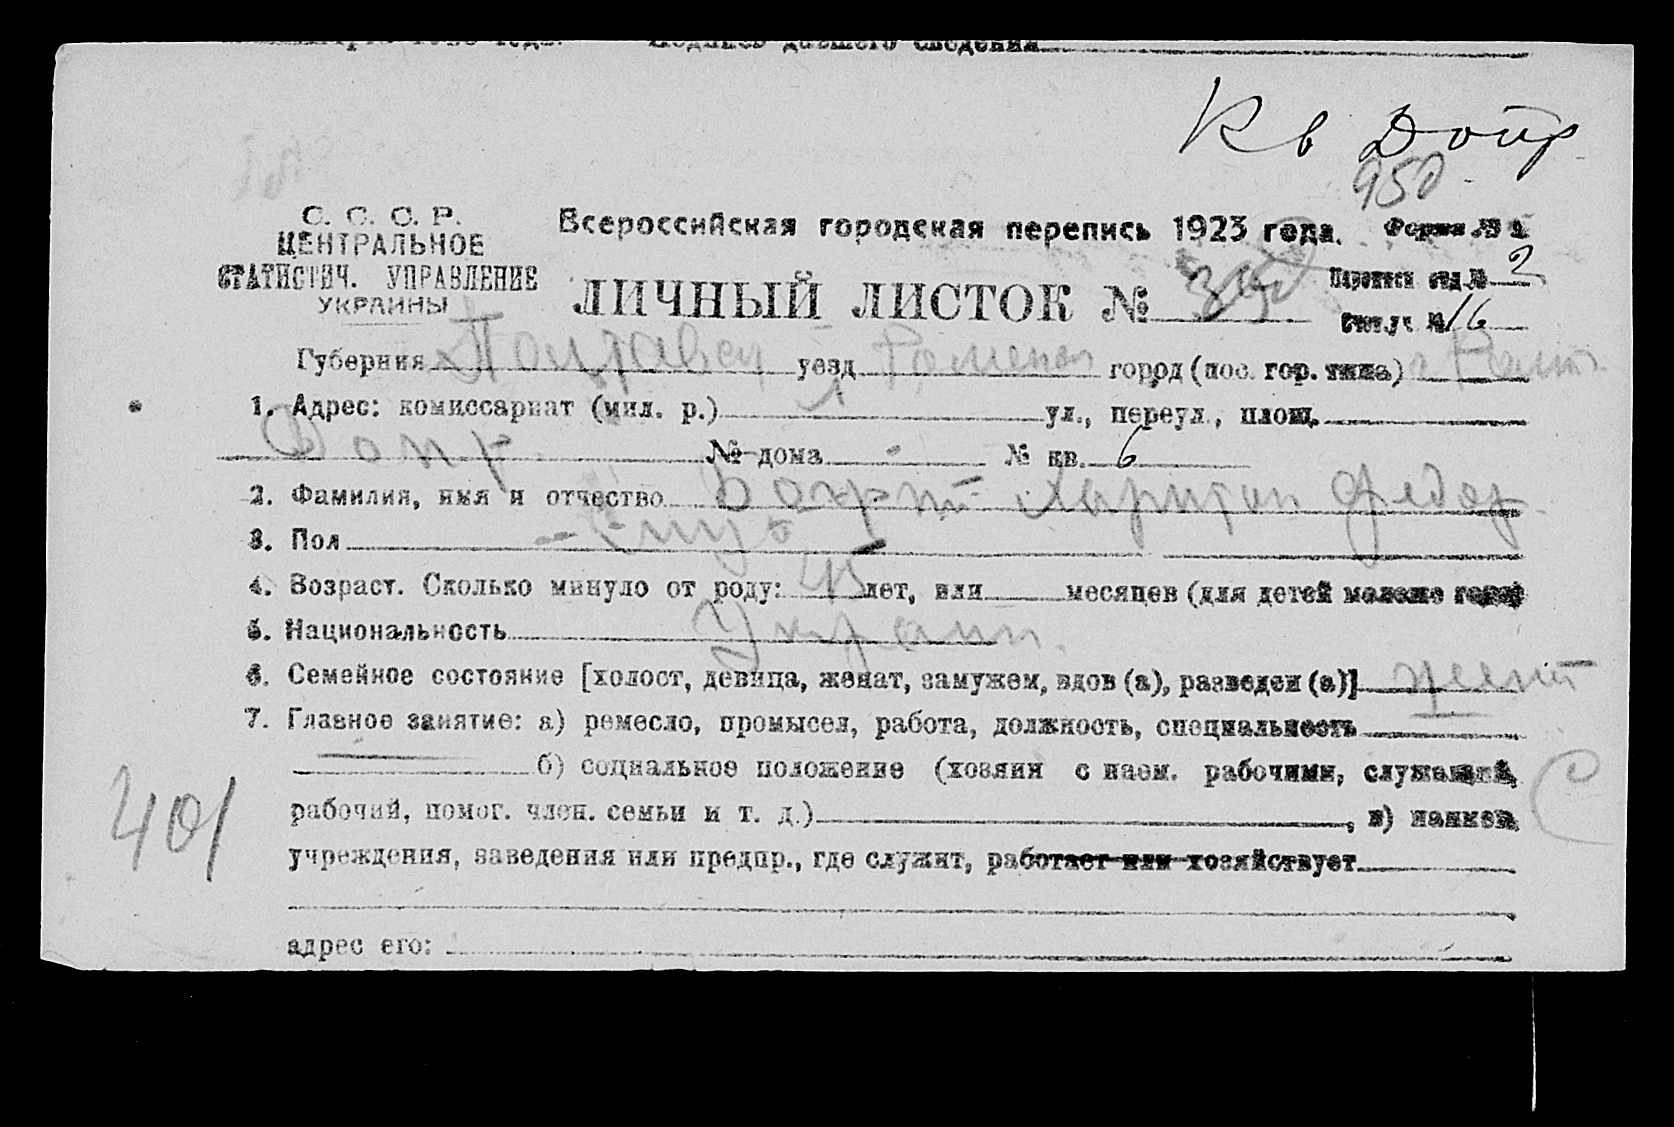 Подпись давшего сведения
Кв Допр
950
С. С. С. Р.
ЦЕНТРАЛЬНОЕ
СТАТИСТИЧ. УПРАВЛЕНИЕ
УКРАИНЫ
Всероссийская городская перепись 1923 года. Форма № 1
ЛИЧНЫЙ ЛИСТОК №
Переписн отд. № 2
Счет. уч. № 16
Губерния Полтавск уезд Роменск город (пос. гор. типа) г Ромн
1. Адрес: комиссариат (мил. р.) 1 ул., переул., площ.
Допр № дома - № кв. 6
2. Фамилия, имя и отчество Харитон Федор
3. Пол - муж
4. Возраст. Сколько минуло от роду: 45 лет, или месяцев (для детей моложе года)
5. Национальность Украин.
6. Семейное состояние [холост, девица, женат, замужем, вдов (а), разведен (а)] женат
7. Главное занятие: а) ремесло, промысел, работа, должность, специальность
б) социальное положение (хозяин с наем. рабочими, служащий,
401
рабочий, помог. член. семьи и т. д.) , в) наимен.
учреждения, заведения или предпр., где служит, работает или хозяйствует
адрес его: